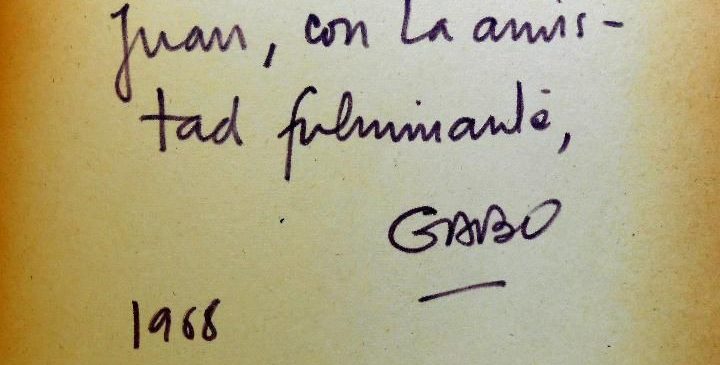 Juan, con la amis-
tad fulminante,
GABO
1968